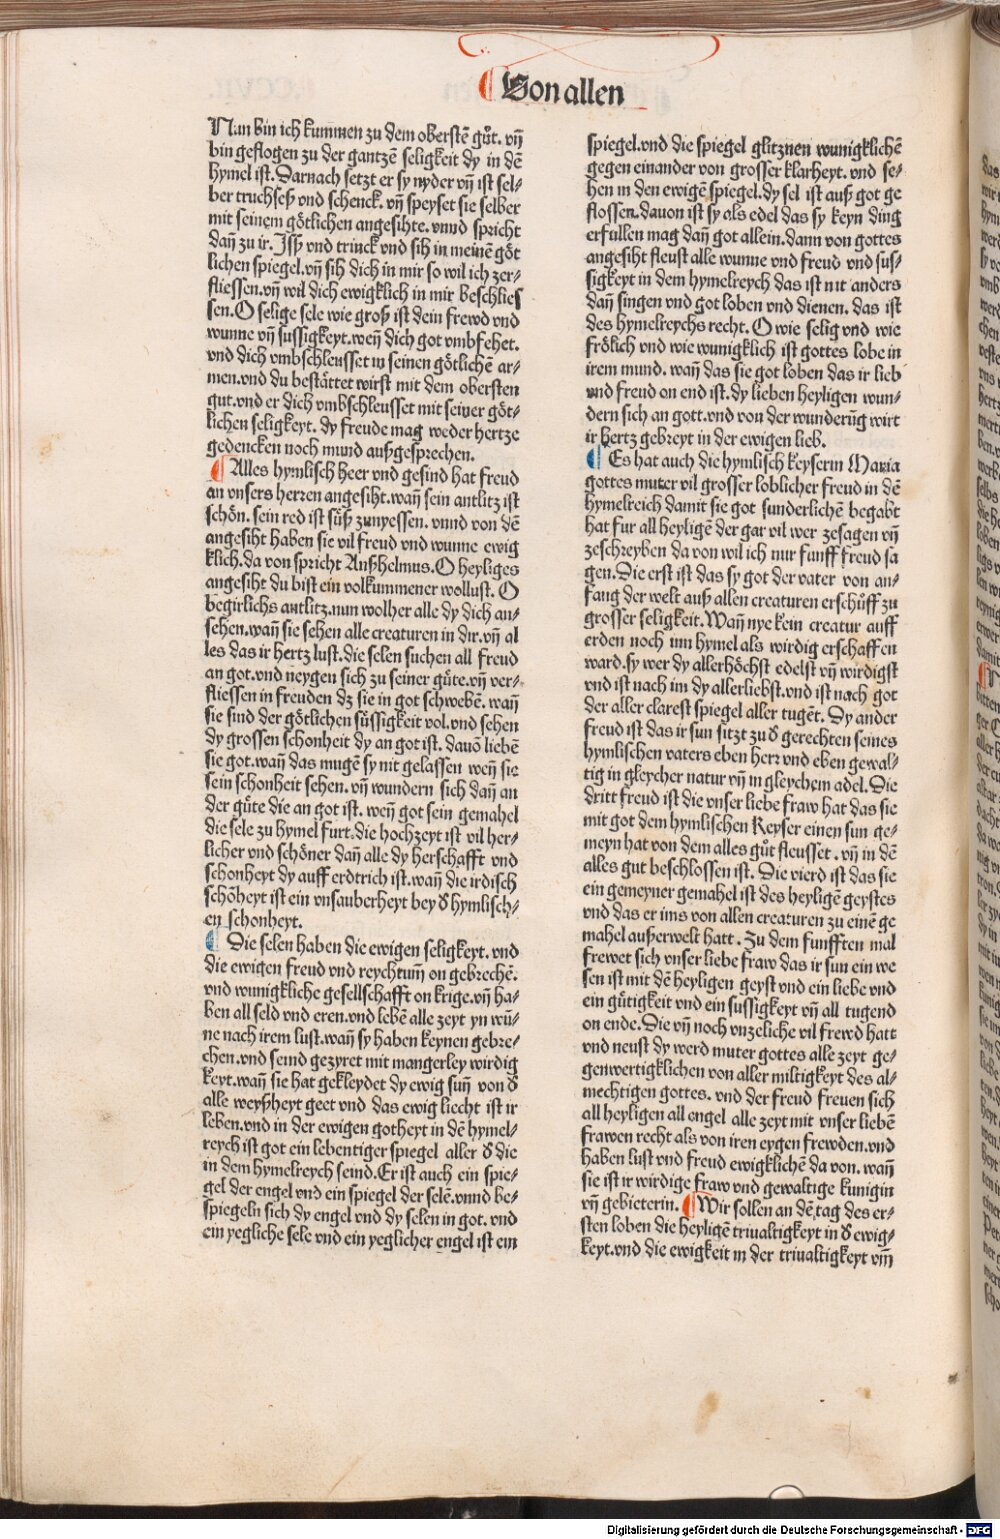 Von allen
Nun bin ich kummen zu dem oberstẽ gůt. vñ
bin geflogen zu der gantzẽ seligkeit dy in dẽ
hymel ist. Darnach setzt er sy nyder vñ ist sel⸗
ber truchseß vnd schenck. vñ speyset sie selber
mit seinem götlichen angesihte. vnnd spricht
dañ zu ir. Jsß vnd trinck vnd sih in meinẽ göt
lichen spiegel. vñ sih dich in mir so wil ich zer⸗
fliessen. vñ wil dich ewigklich in mir beschlies
sen. O selige sele wie groß ist dein frewd vnd
wunne vñ sussigkeyt. weñ dich got vmbfehet.
vnd dich vmbschleusset in seinen götlichẽ ar⸗
men. vnd du bestättet wirst mit dem obersten
gut. vnd er dich vmbschleusset mit seiner göt⸗
lichen seligkeyt. dy freude mag weder hertze
gedencken noch mund außgesprechen.
¶ Alles hymlisch heer vnd gesind hat freud
an vnsers herren angesiht. wañ sein antlitz ist
schön. sein red ist süß zunyessen. vnnd von dẽ
angesiht haben sie vil freud vnd wunne ewig
klich. da von spricht Anßhelmus. O heyliges
angesiht du bist ein volkummener wollust. O
begirlichs antlitz. nun wolher alle dy dich an⸗
sehen. wañ sie sehen alle creaturen in dir. vñ al
les das ir hertz lust. die selen suchen all freud
an got. vnd neygen sich zu seiner güte. vñ ver⸗
fliessen in freuden dz sie in got schwebẽ. wañ
sie sind der götlichen süssigkeit vol. vnd sehen
dy grossen schonheit dy an got ist. dauõ liebẽ
sie got. wañ das mugẽ sy nit gelassen weñ sie
sein schonheit sehen. vñ wundern sich dañ an
der güte die an got ist. weñ got sein gemahel
die sele zu hymel furt. die hochzeyt ist vil her⸗
licher vnd schöner dañ alle dy herschafft vnd
schonheyt dy auff erdtrich ist. wañ die irdisch
schõheyt ist ein vnsauberheyt bey d hymlisch⸗
en schonheyt.
¶ Die selen haben die ewigen seligkeyt. vnd
die ewigen freud vnd reychtum̃ on gebrechẽ.
vnd wunigkliche gesellschafft on krige. vñ ha⸗
ben all seld vnd eren. vnd lebẽ alle zeyt yn wũ⸗
ne nach irem lust. wañ sy haben keynen gebre⸗
chen. vnd seind gezyret mit mangerley wirdig
keyt. wañ sie hat gekleydet dy ewig suñ von d
alle weyßheyt geet vnd das ewig liecht ist ir
leben. vnd in der ewigen gotheyt in dẽ hymel⸗
reych ist got ein lebentiger spiegel aller d die
in dem hymelreych seind. Er ist auch ein spie⸗
gel der engel vnd ein spiegel der selẽ. vnnd be⸗
spiegeln sich dy engel vnd dy selen in got. vnd
ein yegliche sele vnd ein yeglicher engel ist ein
spiegel. vnd die spiegel glitznen wunigklichẽ
gegen einander von grosser klarheyt. vnd se⸗
hen in den ewigẽ spiegel. dy sel ist auß got ge
flossen. dauon ist sy als edel das sy keyn ding
erfullen mag dañ got allein. dann von gottes
angesiht fleust alle wunne vnd freud vnd sus⸗
sigkeyt in dem hymelreych das ist nit anders
dañ singen vnd got loben vnd dienen. das ist
des hymelreychs recht. O wie selig vnd wie
frölich vnd wie wunigklich ist gottes lobe in
irem mund. wañ das sie got loben das ir lieb
vnd freud on end ist. dy lieben heyligen wun⸗
dern sich an gott. vnd von der wunderũg wirt
ir hertz gebreyt in der ewigen lieb.
¶ Es hat auch die hymlisch keyserin Maria
gottes muter vil grosser loblicher freud in dẽ
hymelreich damit sie got sunderlichẽ begabt
hat fur all heyligẽ der gar vil wer zesagen vñ
zeschreyben da von wil ich nur funff freud sa
gen. Die erst ist das sy got der vater von an⸗
fang der welt auß allen creaturen erschůff zu
grosser seligkeit. Wañ nye kein creatur auff
erden noch im hymel als wirdig erschaffen
ward. sy wer dy allerhöchst edelst vñ wirdigst
vnd ist nach im dy allerliebst. vnd ist nach got
der aller clarest spiegel aller tugẽt. Dy ander
freud ist das ir sun sitzt zu d gerechten seines
hymlischen vaters eben herr vnd eben gewal⸗
tig in gleycher natur vñ in gleychem adel. Die
dritt freud ist die vnser liebe fraw hat das sie
mit got dem hymlischen Keyser einen sun ge⸗
meyn hat von dem alles gůt fleusset. vñ in dẽ
alles gut beschlossen ist. Die vierd ist das sie
ein gemeyner gemahel ist des heyligẽ geystes
vnd das er ims von allen creaturen zu einẽ ge
mahel außerwelt hatt. Zu dem funfften mal
frewet sich vnser liebe fraw das ir sun ein we
sen ist mit dẽ heyligen geyst vnd ein liebe vnd
ein gütigkeit vnd ein sussigkeyt vñ all tugend
on ende. Die vñ noch vnzeliche vil frewd hatt
vnd neust dy werd muter gottes alle zeyt ge⸗
genwertigklichen von aller miltigkeyt des al⸗
mechtigen gottes. vnd der freud freuen sich
all heyligen all engel alle zeyt mit vnser liebẽ
frawen recht als von iren eygen frewden. vnd
haben lust vnd freud ewigklichẽ da von. wañ
sie ist ir wirdige fraw vnd gewaltige kunigin
vñ gebieterin. ¶ Wir sollen an dẽ tag des er⸗
sten loben die heyligẽ triualtigkeyt in d ewig⸗
keyt. vnd die ewigkeit in der triualtigkeyt vm̃
Digitalisierung gefördert durch die Deutsche Forschungsgemeinschaft - DFG